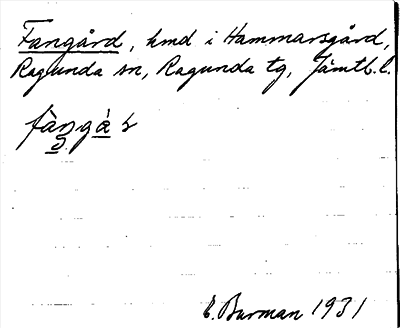 Fangård, hmd i Hammarsgård,
Ragunda sn, Ragunda tg, Jämtl. l.
E. Burman 1931